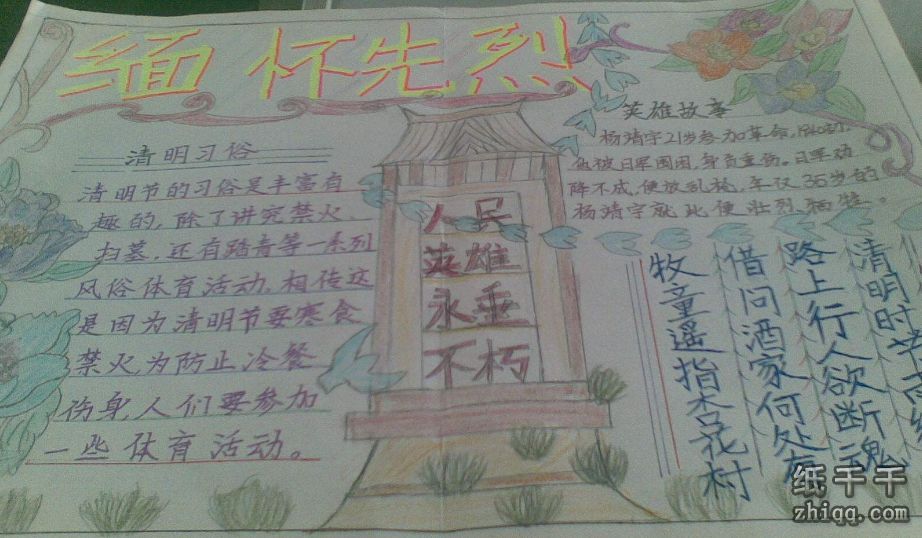 缅怀先烈
清明习俗
清明节的习俗是丰富有
趣的,除了讲究禁火、
扫墓,还有踏青等一系列
风俗体育活动,相传这
是因为清明节要寒食
禁火,为防止冷餐
伤身,人们要参加
一些体育活动。
人民
英雄
永垂
不朽
英雄故事
杨靖宇21岁参加革命,
被日军围困,身负重伤。日军劝
降不成,便放乱枪,年仅35岁的
杨靖宇就此便壮烈牺牲。
清明时
路上行人欲断魂
借问酒家何处有
牧童遥指杏花村
纸千千
zhiqq.com